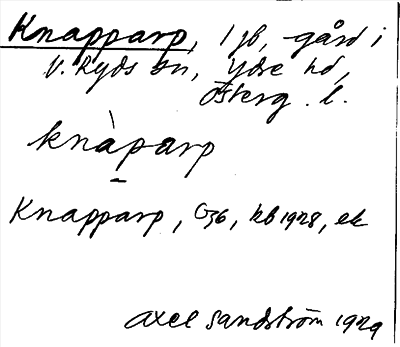 Knapparp, 1 jb, gård i
V. Ryds sn, Ydre hd,
Österg. l.
knàparp
Knapparp, G36, hb 1928, ek
Axel Sandström 1929